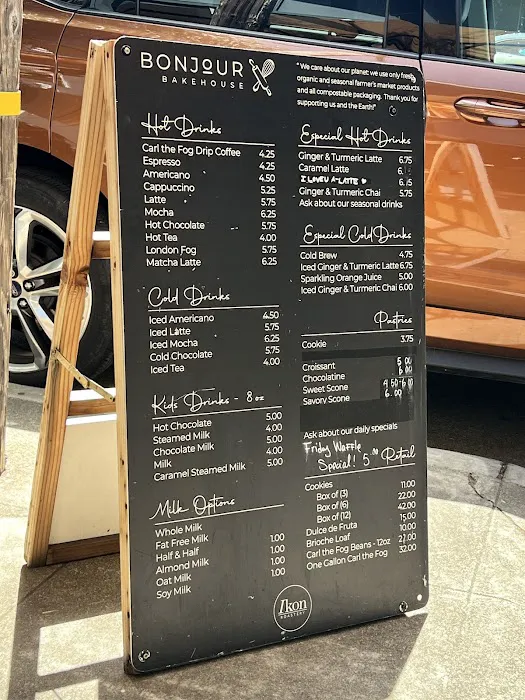 BONJOUR
BAKEHOUSE
"We care about our planet: we use only fresh,
organic and seasonal farmer's market products
and all compostable packaging. Thank you for
supporting us and the Earth!"
Hot Drinks
Carl the Fog Drip Coffee 4.25
Espresso 4.25
Americano 4.50
Cappuccino 5.25
Latte 5.75
Mocha 6.25
Hot Chocolate 5.75
Hot Tea 4.00
London Fog 5.75
Matcha Latte 6.25
Cold Drinks
Iced Americano 4.50
Iced Latte 5.75
Iced Mocha 6.25
Cold Chocolate 5.75
Iced Tea 4.00
Kids Drinks - 8 oz
Hot Chocolate 5.00
Steamed Milk 4.00
Chocolate Milk 5.00
Milk 4.00
Caramel Steamed Milk 5.00
Milk Options
Whole Milk
Fat Free Milk
Half & Half 1.00
Almond Milk 1.00
Oat Milk 1.00
Soy Milk 1.00
Ikon
ROASTERY
Especial Hot Drinks
Ginger & Turmeric Latte 6.75
Caramel Latte
I LOVEU A-LATTE ♥
Ginger & Turmeric Chai 5.75
Ask about our seasonal drinks
Especial Cold Drinks
Cold Brew 4.75
Iced Ginger & Turmeric Latte 6.75
Sparkling Orange Juice 5.00
Iced Ginger & Turmeric Chai 6.00
Pastries
Cookie 3.75
Croissant 5.00
Chocolatine 6.00
Sweet Scone 4.50-6.00
Savory Scone 6.00
Ask about our daily specials
Friday Waffle
Special! 5.00
Retail
Cookies
Box of (3) 11.00
Box of (6) 22.00
Box of (12) 42.00
Dulce de Fruta 15.00
Brioche Loaf 10.00
Carl the Fog Beans - 12oz 21.00
One Gallon Carl the Fog 32.00